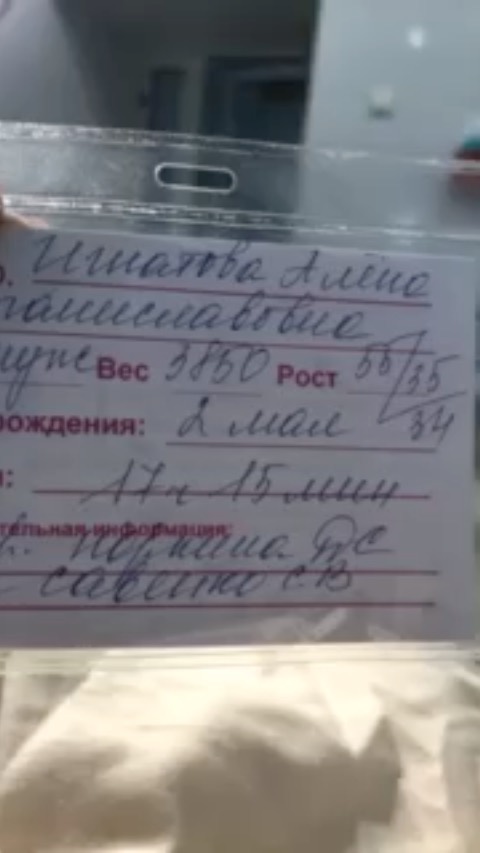 О. Игнатова Алёна
таниславовна
муж Вес 3850 Рост 55/35
34
рождения: 2 мая
и: 17ч 15 мин
тельная информация:
ДС
Савенко С.В